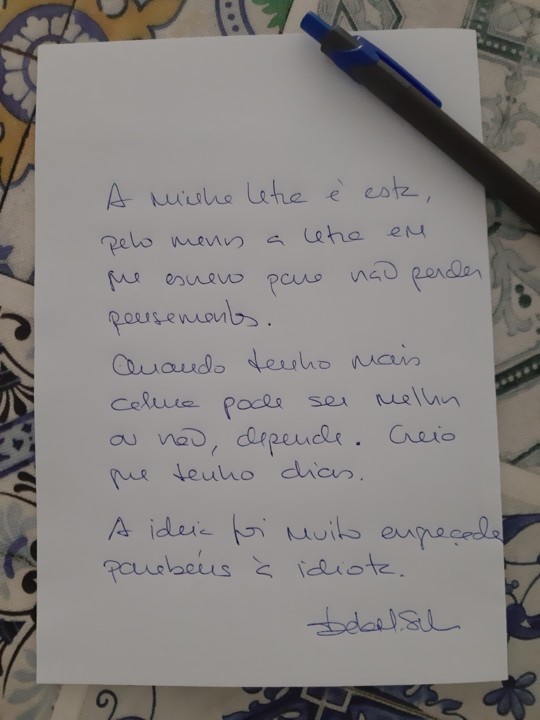 A minha letra é esta,
pelo menos a letra em
que escrevo para não perder
pensamentos.
Quando tenho mais
calma pode ser melhor
ou não, depende. Creio
que tenho dias.
A ideia foi muito engraçada
parabéns à idiota.